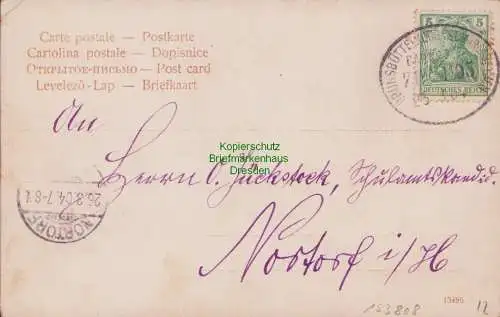 Carte postale — Postkarte
Cartolina postale — Dopisnice
Открытое-письмо — Post card
Levelező-Lap — Briefkaart
5 5
DEUTSCHES REICH
Kopierschutz
Briefmarkenhaus
Dresden
An
Herrn O. Juckstock, Schulamtskandid.
Nortorf i/H
NORTORF
26.3.04. 7-8
153808
13495
12